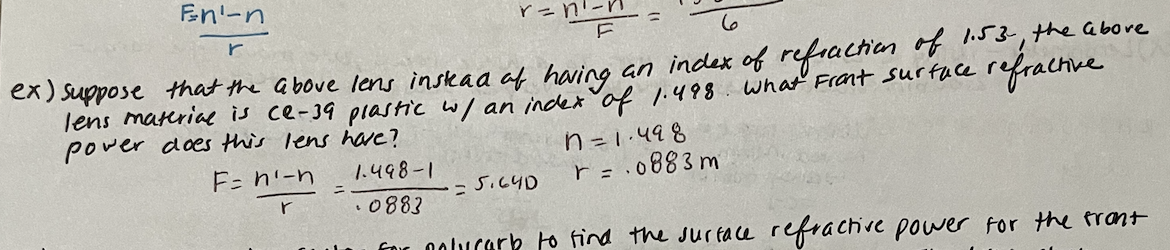 F=n'-n r = n'-n =
r F 6
ex) suppose that the above lens instead of having an index of refraction of 1.53, the above
lens material is CR-39 plastic w/ an index of 1.498. What Front surface refractive
power does this lens have?
n = 1.498
F = n'-n = 1.498-1 = 5.64D r = .0883 m
r .0883
polycarb to find the surface refractive power for the front